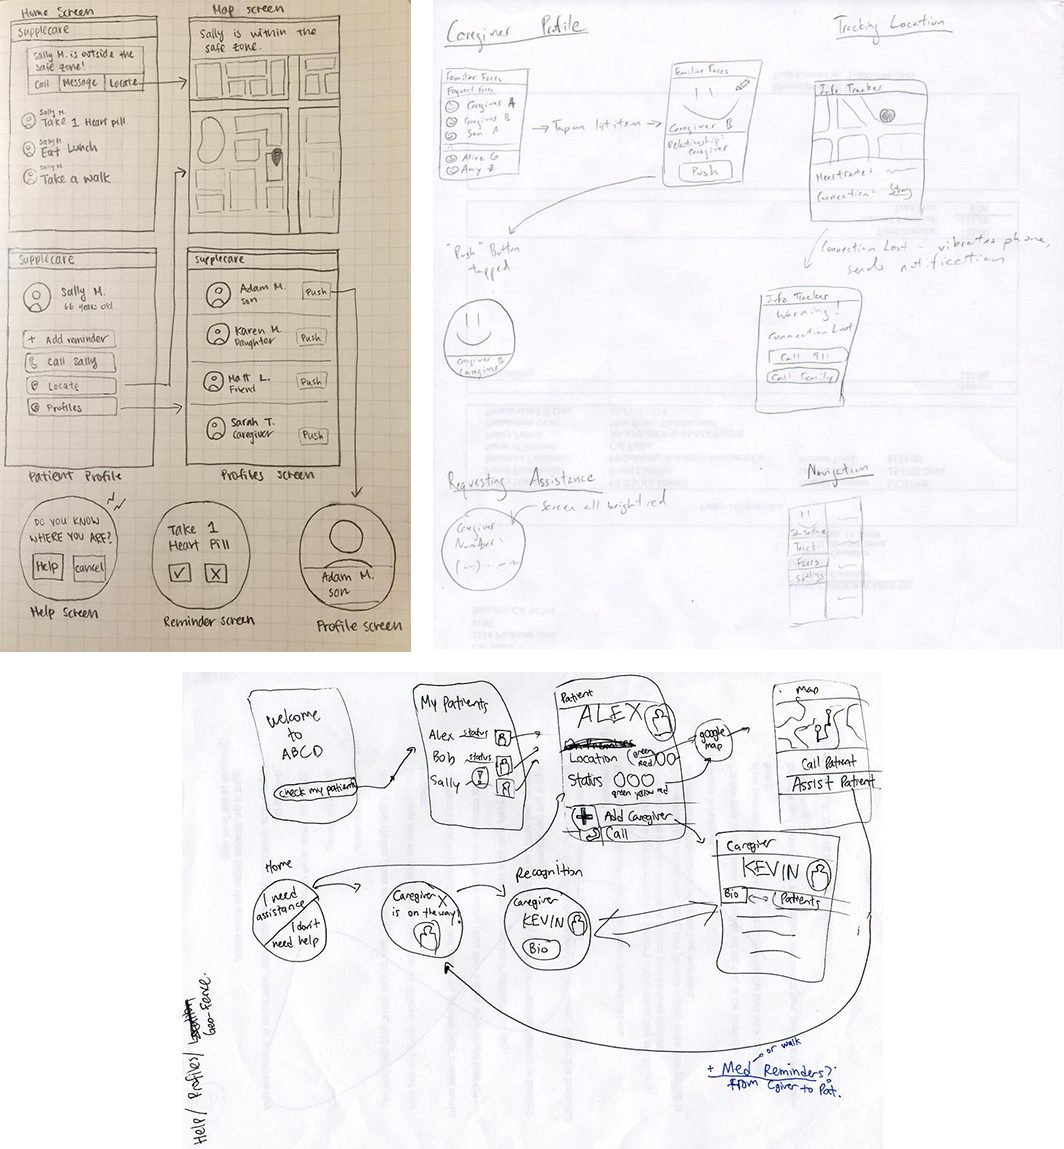 Home Screen
Supplecare
Sally M. is outside the
safe zone!
Call
Message
Locate
Sally M.
Take 1 Heart pill.
Sally M
Eat Lunch
Sally M
Take a walk
Map screen
Sally is within the
safe zone.
Supplecare
Sally M.
66 years old
+ Add reminder
Call Sally
Locate
Profiles
Patient Profile
Supplecare
Adam M.
son
Push
Karen M.
Daughter
Push
Matt L.
Friend
Push
Sarah T.
Caregiver
Push
Profiles screen
DO YOU KNOW
WHERE YOU ARE?
Help
cancel
Help screen
Take 1
Heart Pill
Reminder screen
Adam M.
son
Profile screen
Caregiver Profile
Familiar Faces
Frequent Faces
Caregiver A
Caregiver B
Son A
Alice G
Amy Z
Tap on list item
Familiar Faces
Caregiver B
Relationship:
Caregiver
Push
"Push" Button
tapped
Caregiver B
Caregiver
Tracking Location
Info Tracker
Heartrate:
Connection: Strong
Connection Lost - vibrates phone,
sends notification
Info Tracker
Warning!
Connection Lost
Call 911
Call Family
Requesting Assistance
Screen all bright red
Caregiver
Number:
Navigation
Track
Faces
Settings
Welcome
to
ABCD
check my patients
My Patients
Alex status
Bob status
Sally !
Patient
ALEX
Location (green
red)
Status
green yellow red
+ Add Caregiver
Call
google
map
Map
Call Patient
Assist Patient
Home
I need
assistance
I don't
need help
Caregiver X
is on the way!
Recognition
Caregiver
KEVIN
Bio
Caregiver
KEVIN
Bio
Patients
Help/ Profiles/
Geo-fence.
or walk
+ Med Reminders?
from Cgiver to Pat.